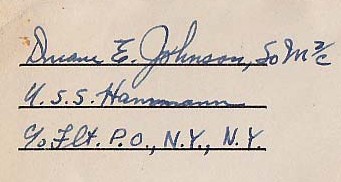 Duane E. Johnson, SoM 2/c
U.S.S. Hammann
c/o Flt. P.O., N.Y., N.Y.